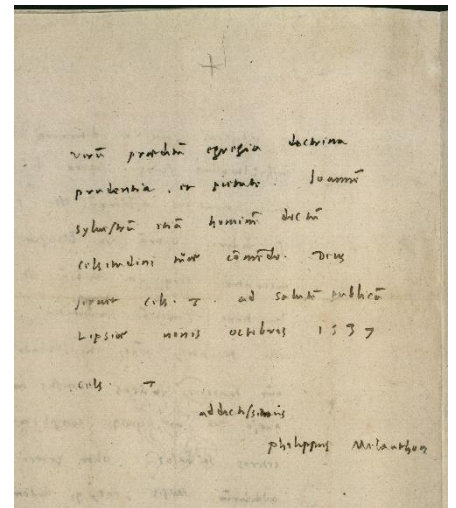 virū præditū egregia doctrina
prudentia, et pietate. Ioannē
Sylvestrū etiā hominē doctū
celsitudini tuæ cōmēdo. Deus
servet cels. T. ad salutē publicā
Lipsiæ nonis octobris 1537
cels. T
addictissimus
philippus Melanthon